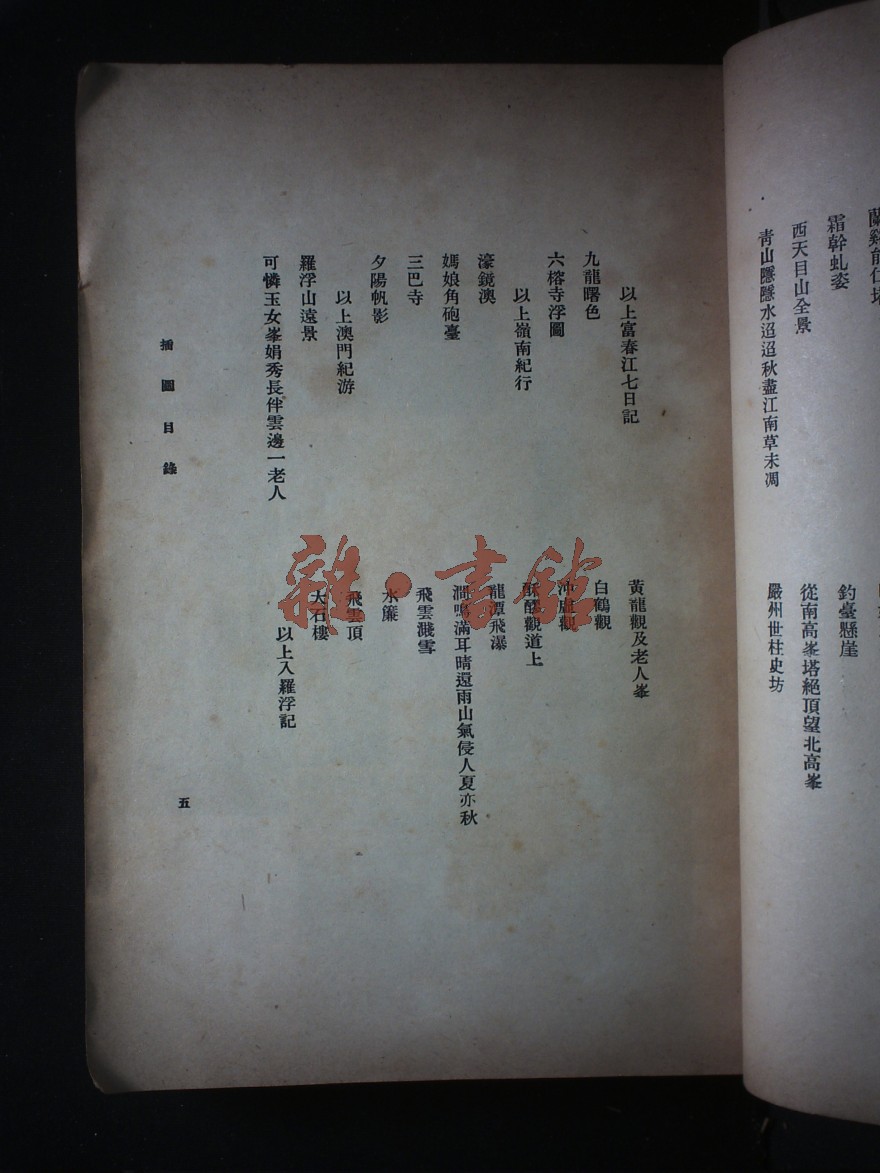 蘭谿能仁塔
霜幹虬姿
西天目山全景
青山隱隱水迢迢秋盡江南草未凋
釣臺懸崖
從南高峯塔絕頂望北高峯
嚴州世柱史坊
以上富春江七日記
九龍曙色
六榕寺浮圖
以上嶺南紀行
濠鏡澳
媽娘角砲臺
三巴寺
夕陽帆影
以上澳門紀游
羅浮山遠景
可憐玉女峯娟秀長伴雲邊一老人
黃龍觀及老人峯
白鶴觀
沖虛觀
酥醪觀道上
龍潭飛瀑
澗鳴滿耳晴還雨山氣侵人夏亦秋
飛雲濺雪
水簾
飛雲頂
大石樓
以上入羅浮記
插圖目錄
五
雜·書館